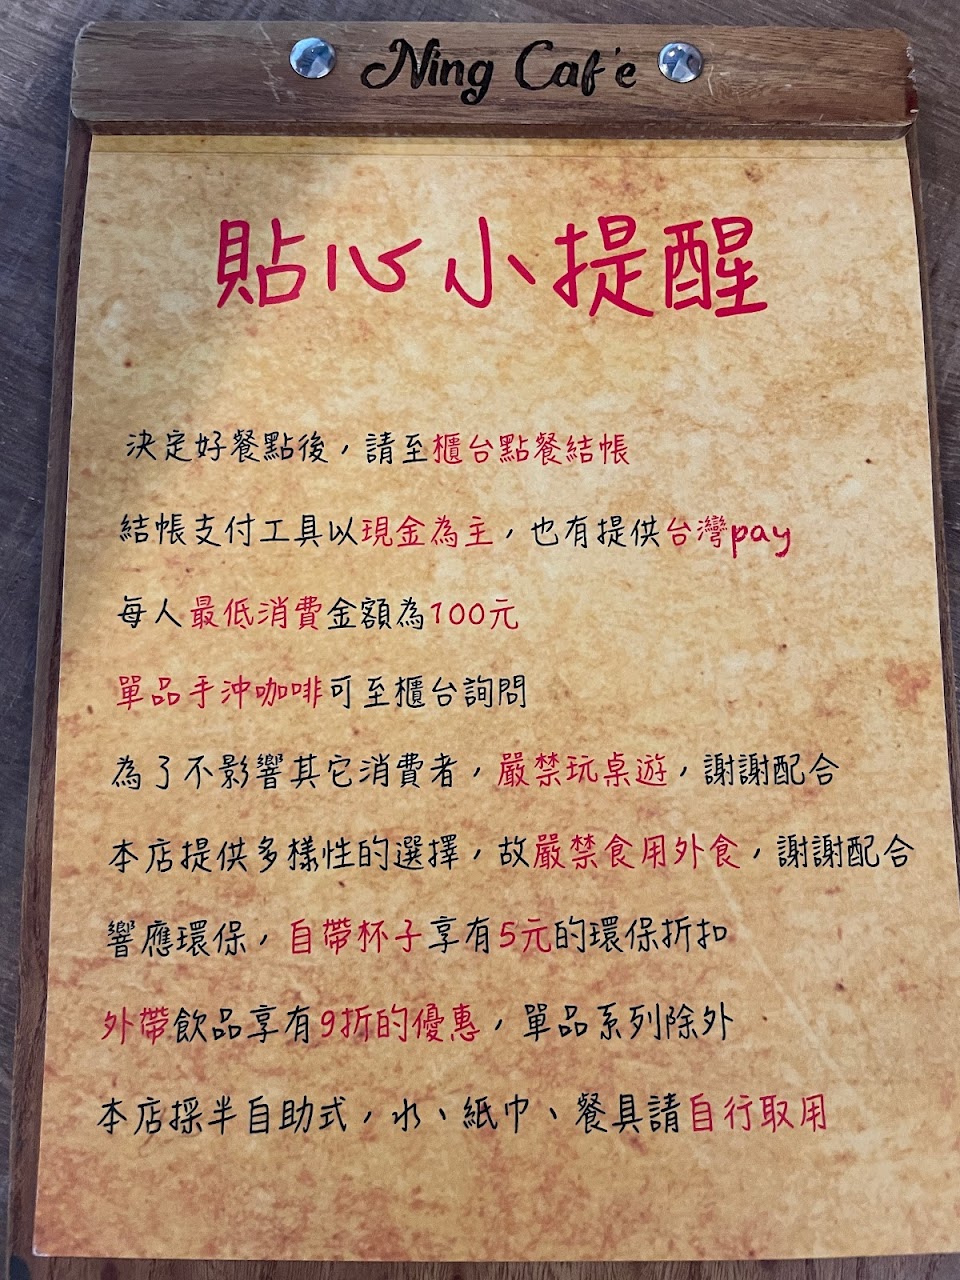 Ning Caf'e
貼心小提醒
決定好餐點後，請至櫃台點餐結帳
結帳支付工具以現金為主，也有提供台灣pay
每人最低消費金額為100元
單品手沖咖啡可至櫃台詢問
為了不影響其它消費者，嚴禁玩桌遊，謝謝配合
本店提供多樣性的選擇，故嚴禁食用外食，謝謝配合
響應環保，自帶杯子享有5元的環保折扣
外帶飲品享有9折的優惠，單品系列除外
本店採半自助式，水、紙巾、餐具請自行取用